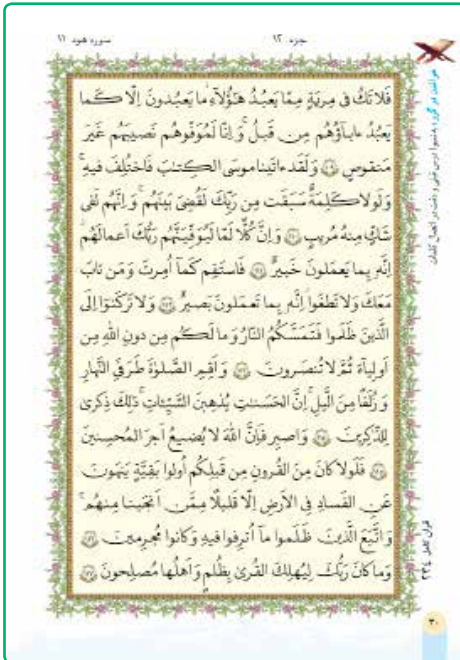 جزء ۱۲
سوره هود ۱۱
فَلا تَكُ فی مِریَةٍ مِمّا یَعبُدُ هٰٓؤُلآءِ ما یَعبُدونَ اِلّا كَما
یَعبُدُ ءابآؤُهُم مِن قَبلُ وَ اِنّا لَمُوَفّوهُم نَصیبَهُم غَیرَ
مَنقوصٍ ۱۰۹ وَ لَقَد ءاتَینا موسَی الكِتٰبَ فَاختُلِفَ فیهِ
وَ لَولا كَلِمَةٌ سَبَقَت مِن رَبِّكَ لَقُضِیَ بَینَهُم وَ اِنَّهُم لَفی
شَكٍّ مِنهُ مُریبٍ ۱۱۰ وَ اِنَّ كُلًّا لَمّا لَیُوَفِّیَنَّهُم رَبُّكَ اَعمالَهُم
اِنَّهُ بِما یَعمَلونَ خَبیرٌ ۱۱۱ فَاستَقِم كَمآ اُمِرتَ وَ مَن تابَ
مَعَكَ وَ لا تَطغَوا اِنَّهُ بِما تَعمَلونَ بَصیرٌ ۱۱۲ وَ لا تَركَنوٓا اِلَی
الَّذینَ ظَلَموا فَتَمَسَّكُمُ النّارُ وَ ما لَكُم مِن دونِ اللهِ مِن
اَولیآءَ ثُمَّ لا تُنصَرونَ ۱۱۳ وَ اَقِمِ الصَّلوٰةَ طَرَفَیِ النَّهارِ
وَ زُلَفًا مِنَ الَّیلِ اِنَّ الحَسَنٰتِ یُذهِبنَ السَّیِّئاتِ ذٰلِكَ ذِكریٰ
لِلذّٰكِرینَ ۱۱۴ وَ اصبِر فَاِنَّ اللهَ لا یُضیعُ اَجرَ المُحسِنینَ
۱۱۵ فَلَولا كانَ مِنَ القُرونِ مِن قَبلِكُم اُولوا بَقِیَّةٍ یَنهَونَ
عَنِ الفَسادِ فِی الاَرضِ اِلّا قَلیلًا مِمَّن اَنجَینا مِنهُم
وَ اتَّبَعَ الَّذینَ ظَلَموا مآ اُترِفوا فیهِ وَ كانوا مُجرِمینَ ۱۱۶
وَ ما كانَ رَبُّكَ لِیُهلِكَ القُریٰ بِظُلمٍ وَ اَهلُها مُصلِحونَ ۱۱۷
۳۰